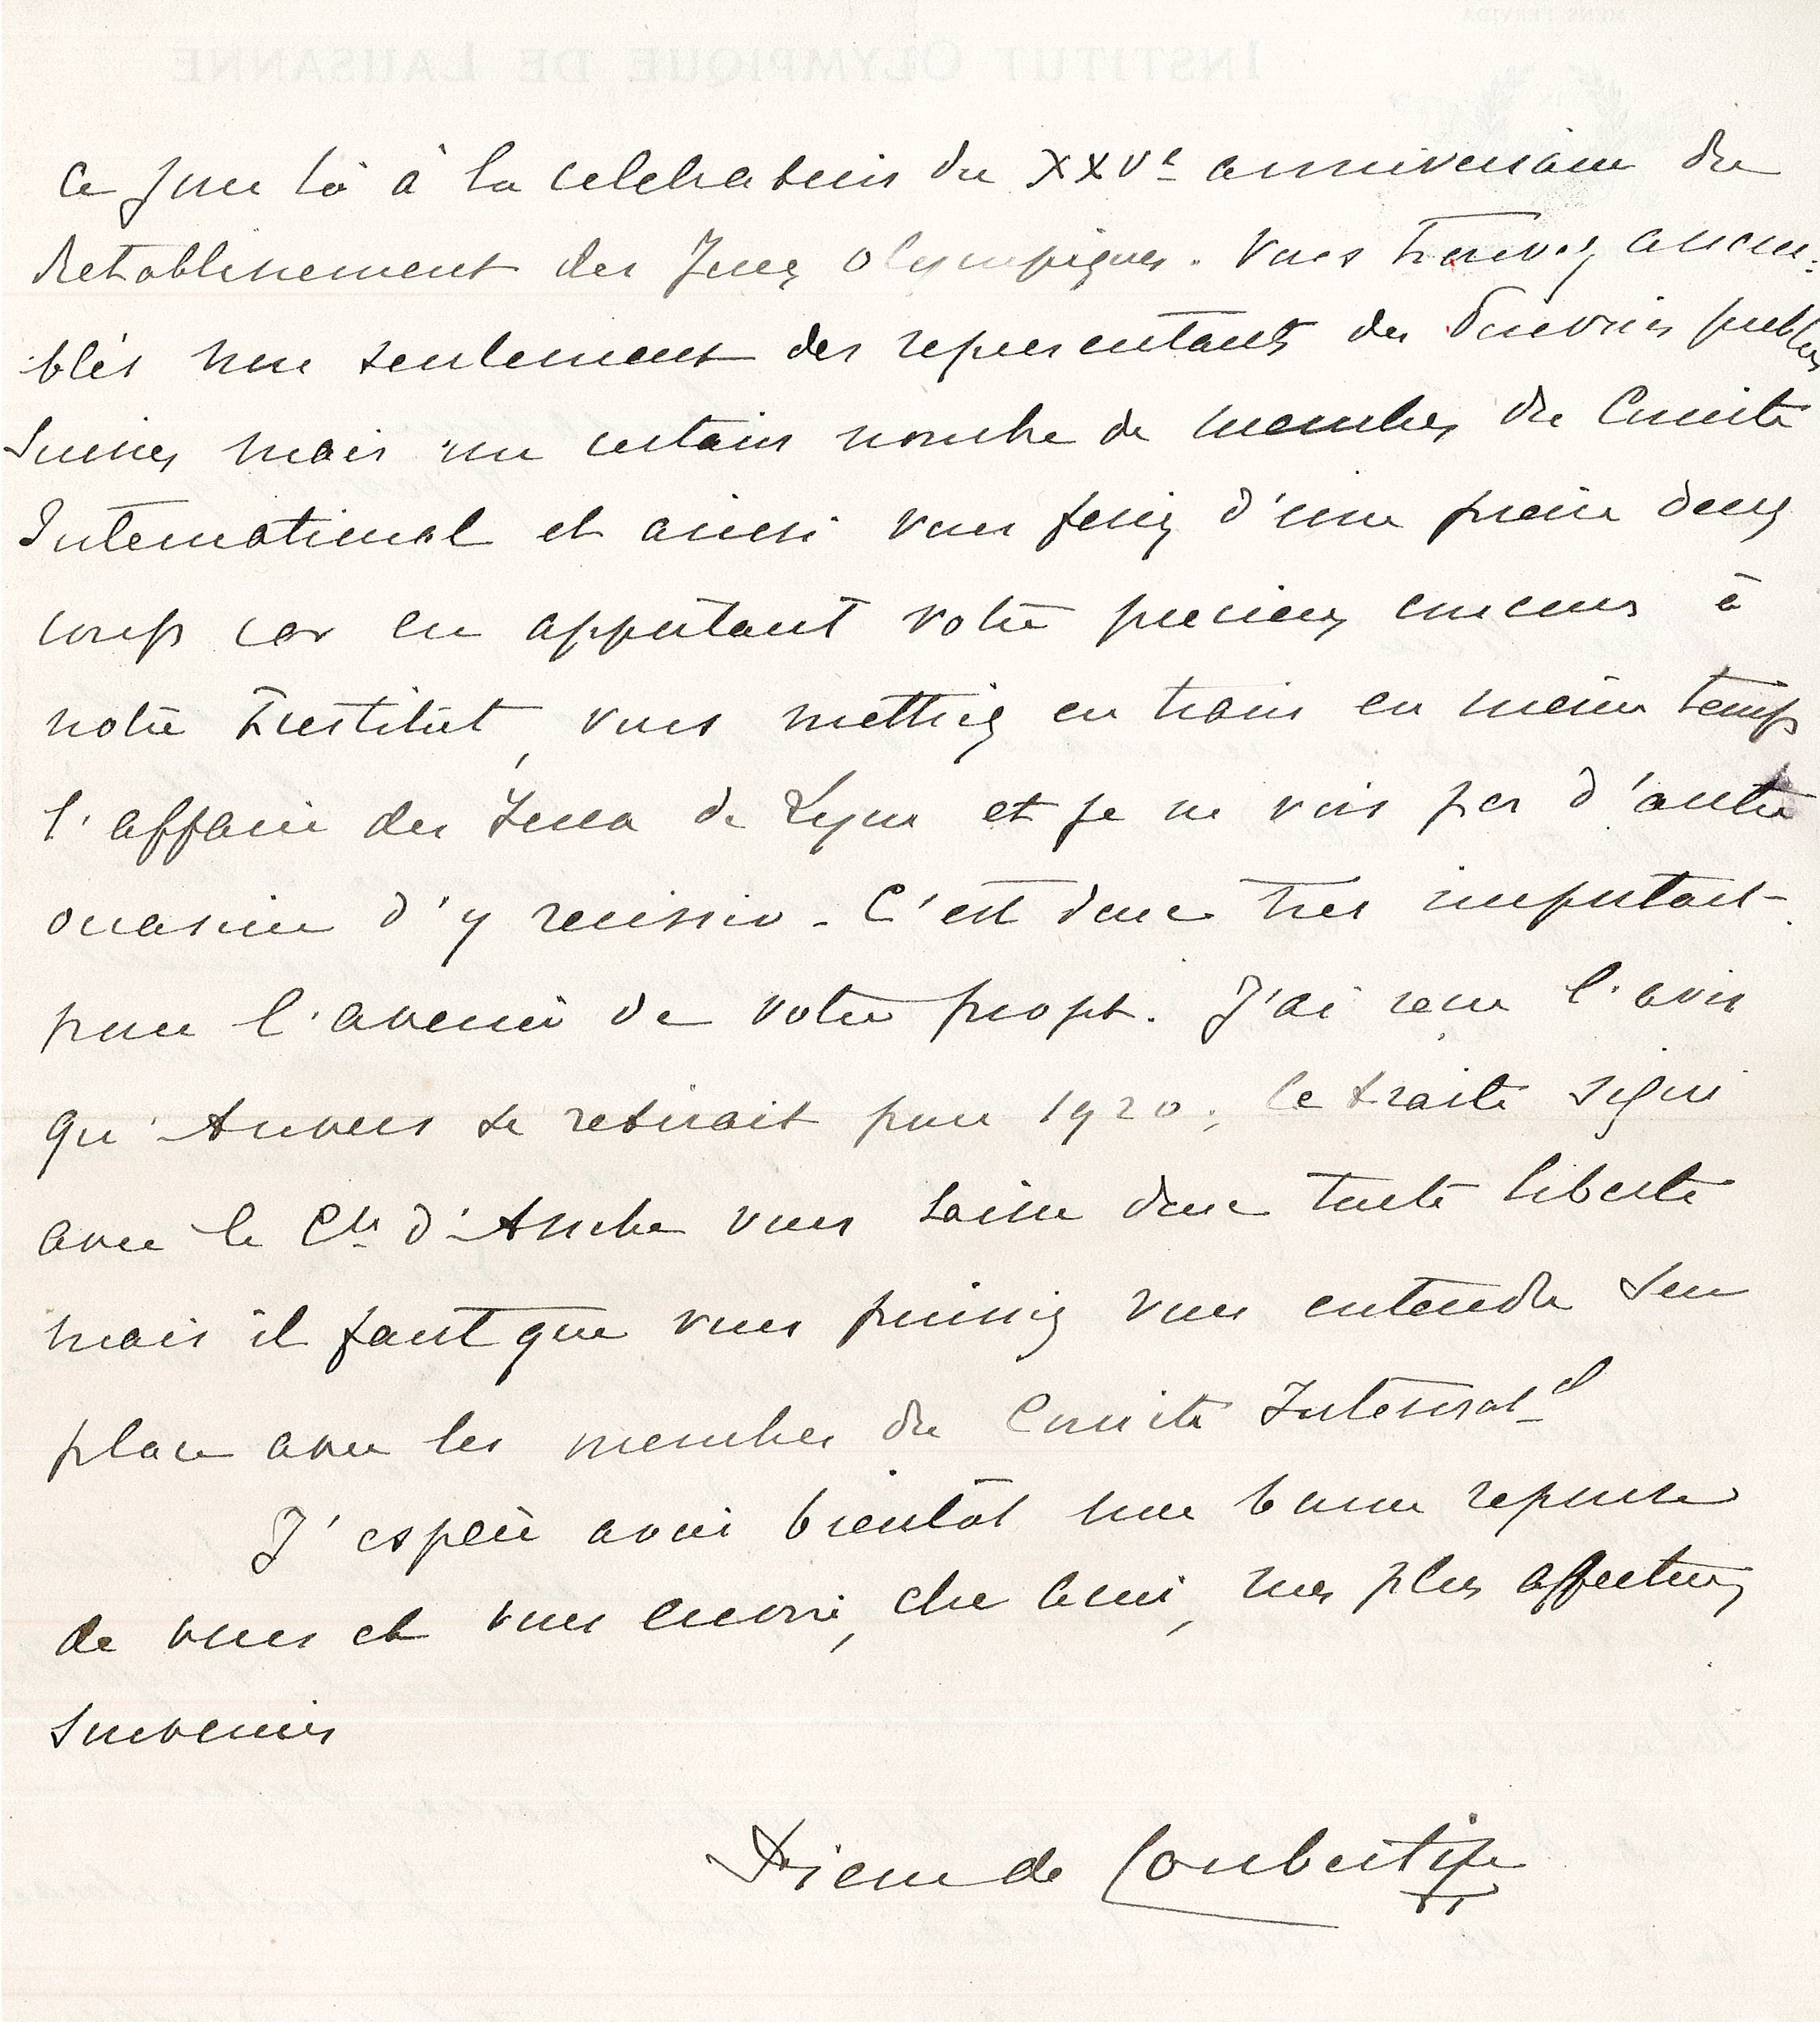 INSTITUT OLYMPIQUE DE LAUSANNE
ce jour là à la celebration du XXVe anniversaire du
Retablissement des Jeux Olympiques. Vous trouvez assem-
blés non seulement des representants des Pouvoirs publics
Suisses mais un certain nombre de membres du Comité
International et ainsi vous feriez d'une pierre deux
coups car en apportant votre precieux concours à
notre Institut, vous mettriez en train en même temps
l'affaire des Jeux de Lyon et je ne vois pas d'autre
occasion d'y reussir. C'est donc tres important
pour l'avenir de votre projet. J'ai reçu l'avis
qu'Anvers se retirait pour 1920; le traité signé
avec le Cte d'Assche vous laisse donc toute liberté
mais il faut que vous puissiez vous entendre sur
place avec les membres du Comité Internatal
J'espère avoir bientôt une bonne reponse
de vous et vous envoie, cher ami, mes plus affectueux
souvenirs
Pierre de Coubertin